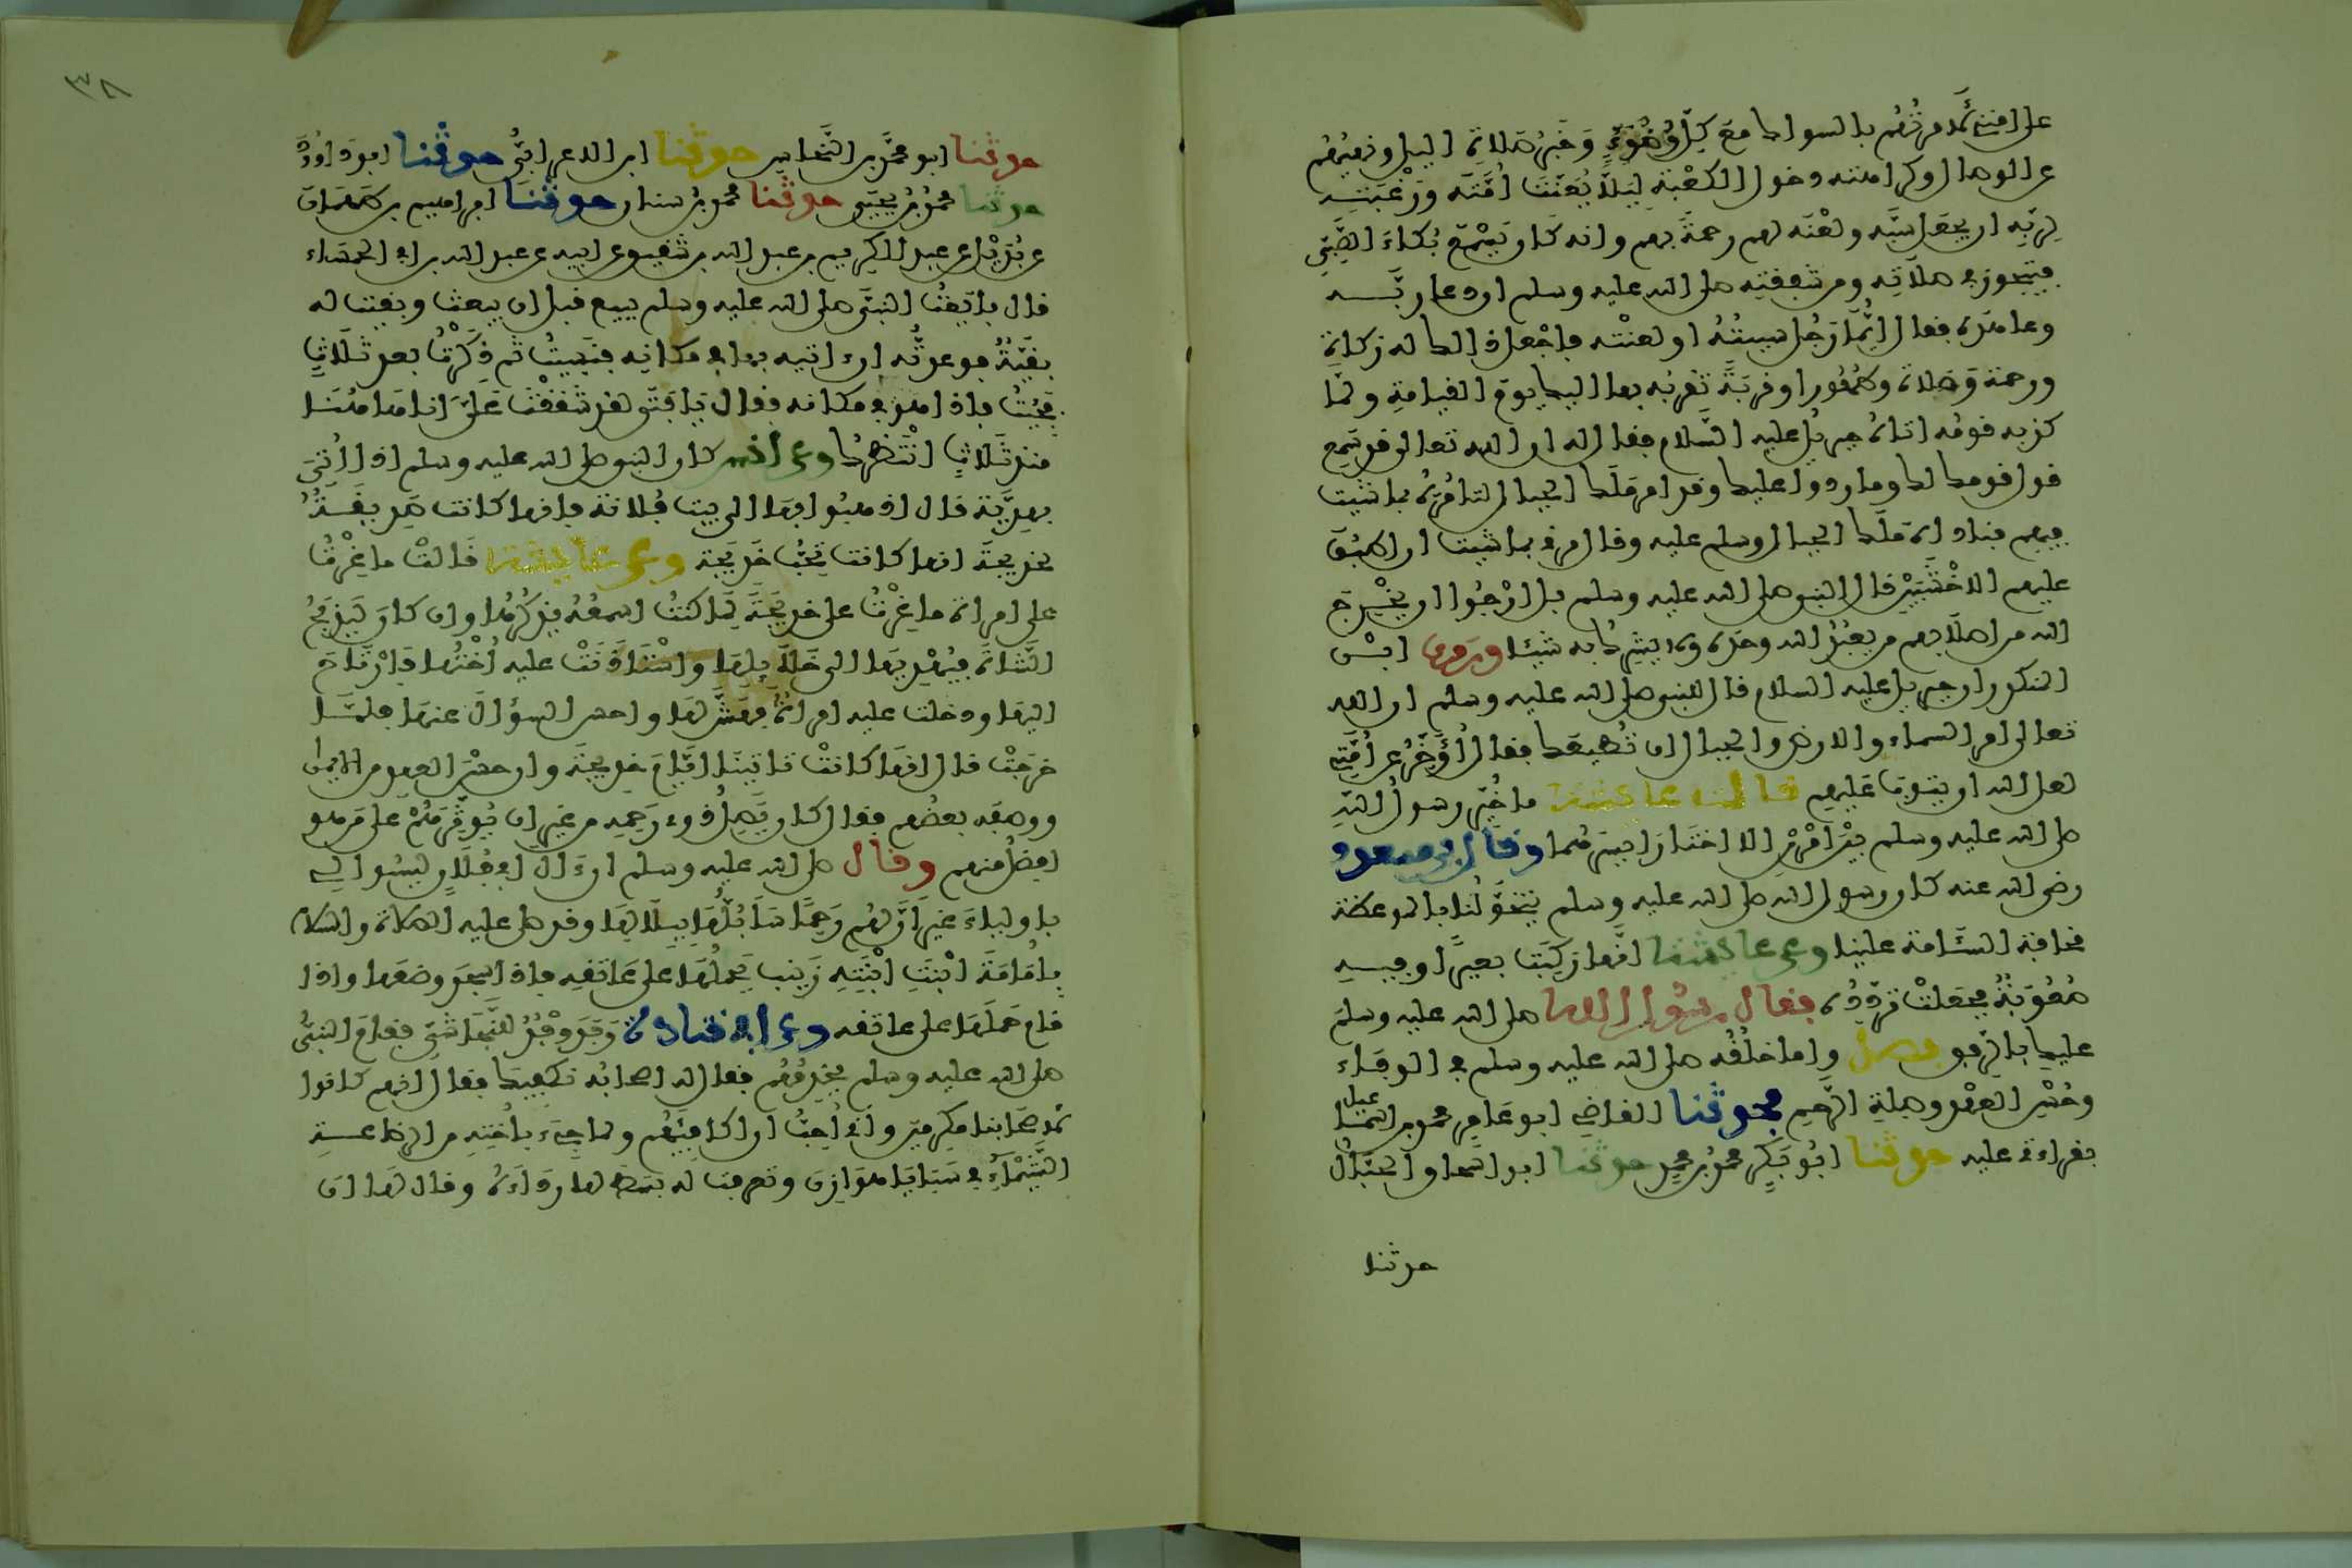 على امتي لأمرتهم بالسواك مع كل وضوء وخبر صلاة الليل ونهيهم
عن الوصال وكراهته دخول الكعبة ليلا يعنت أمته ورغبته
لربه ان يجعل سبه ولعنه لهم رحمة بهم وانه كان يسمع بكاء الصبي
فيتجوز في صلاته ومن شفقته صلى الله عليه وسلم ان دعا ربه
وعاهده فقال ايما رجل سببته او لعنته فاجعل ذلك له زكاة
ورحمة وصلاة وطهورا وقربة تقربه بها اليك يوم القيامة ولما
كذبه قومه اتاه جبريل عليه السلام فقال له ان الله تعالى قد سمع
قول قومك لك وما ردوا عليك وقد امر ملك الجبال لتامره بما شئت
فيهم فناداه ملك الجبال وسلم عليه وقال مرني بما شئت ان اطبق
عليهم الاخشبين قال النبي صلى الله عليه وسلم بل ارجوا ان يخرج
الله من اصلابهم من يعبد الله وحده ولا يشرك به شيئا وروى ابن
المنكدر ان جبريل عليه السلام قال للنبي صلى الله عليه وسلم ان الله
تعالى امر السماء والارض والجبال ان تطيعك فقال أؤخر عن أمتي
لعل الله ان يتوب عليهم قالت عائشة ما خير رسول الله
صلى الله عليه وسلم بين امرين الا اختار ايسرهما وقال ابن مسعود
رضي الله عنه كان رسول الله صلى الله عليه وسلم يتخولنا بالموعظة
مخافة السئامة علينا وعن عائشة انها ركبت بعيرا وفيه
صعوبة فجعلت تردده فقال رسول الله صلى الله عليه وسلم
عليك بالرفق فصل واما خلقه صلى الله عليه وسلم في الوفاء
وحسن العهد وصلة الرحم فحدثنا القاضي ابو عامر محمد بن اسماعيل
بقراءتي عليه حدثنا ابو بكر محمد بن محمد حدثنا ابو اسحاق الحبال
حدثنا
٣٨
حدثنا ابو محمد بن النحاس حدثنا ابن الاعرابي حدثنا ابو داود
حدثنا محمد بن يحيى حدثنا محمد بن سنان حدثنا ابراهيم بن طهمان
عن بديل عن عبد الكريم بن عبد الله بن شقيق عن ابيه عن عبد الله بن ابي الحمساء
قال بايعت النبي صلى الله عليه وسلم ببيع قبل ان يبعث وبقيت له
بقية فوعدته ان اتيه بها في مكانه فنسيت ثم ذكرت بعد ثلاث
فجئت فاذا هو في مكانه فقال يا فتى لقد شققت علي انا هاهنا
منذ ثلاث انتظرك وعن انس كان النبي صلى الله عليه وسلم اذا أتي
بهدية قال اذهبوا بها الى بيت فلانة فانها كانت صديقة
لخديجة انها كانت تحب خديجة وعن عائشة قالت ما غرت
على امراة ما غرت على خديجة لما كنت اسمعه يذكرها وان كان ليذبح
الشاة فيهديها الى خلائلها واستاذنت عليه أختها فارتاح
اليها ودخلت عليه امراة فهش لها واحسن السؤال عنها فلما
خرجت قال انها كانت تاتينا ايام خديجة وان حسن العهد من الايمان
ووصفه بعضهم فقال كان يصل ذوي رحمه من غير ان يوثرهم على من هو
افضل منهم وقال صلى الله عليه وسلم ان ءال ابي فلان ليسوا لي
باولياء غير ان لهم رحما سابلها ببلالها وقد صلى عليه الصلاة والسلام
بامامة ابنت ابنته زينب يحملها على عاتقه فاذا سجد وضعها واذا
قام حملها على عاتقه وعن ابي قتادة وفد وفد للنجاشي فقام النبي
صلى الله عليه وسلم يخدمهم فقال له اصحابه نكفيك فقال انهم كانوا
لاصحابنا مكرمين واني أحب ان اكافيهم ولما جيء باخته من الرضاعة
الشيماء في سبايا هوازن وتعرفت له بسط لها رداءه وقال لها ان